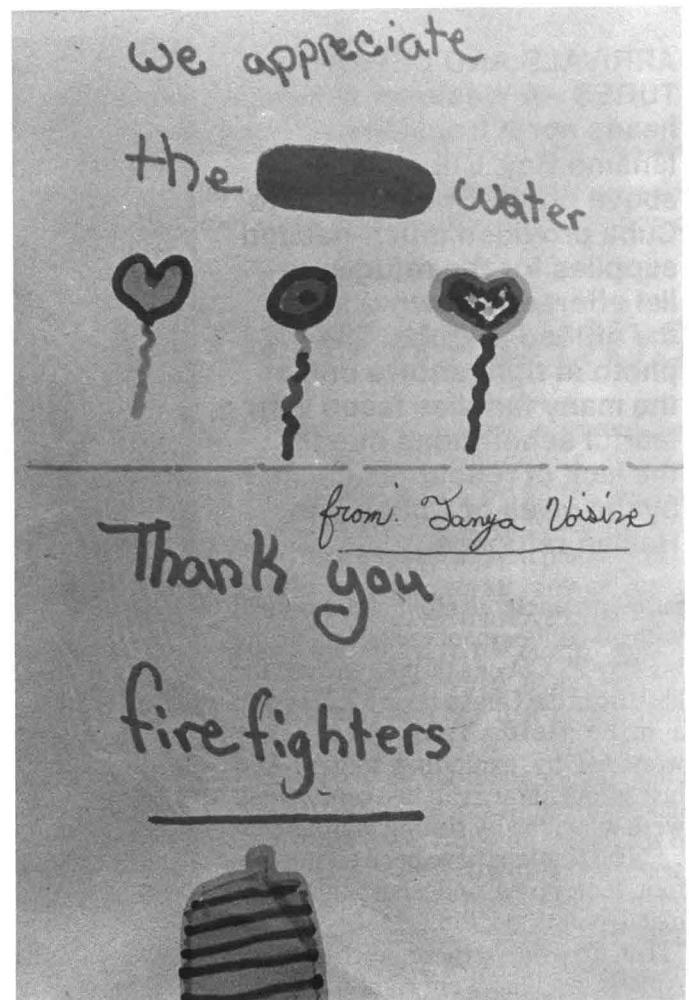 we appreciate
the water
from: Tanya Voisine
Thank you
firefighters